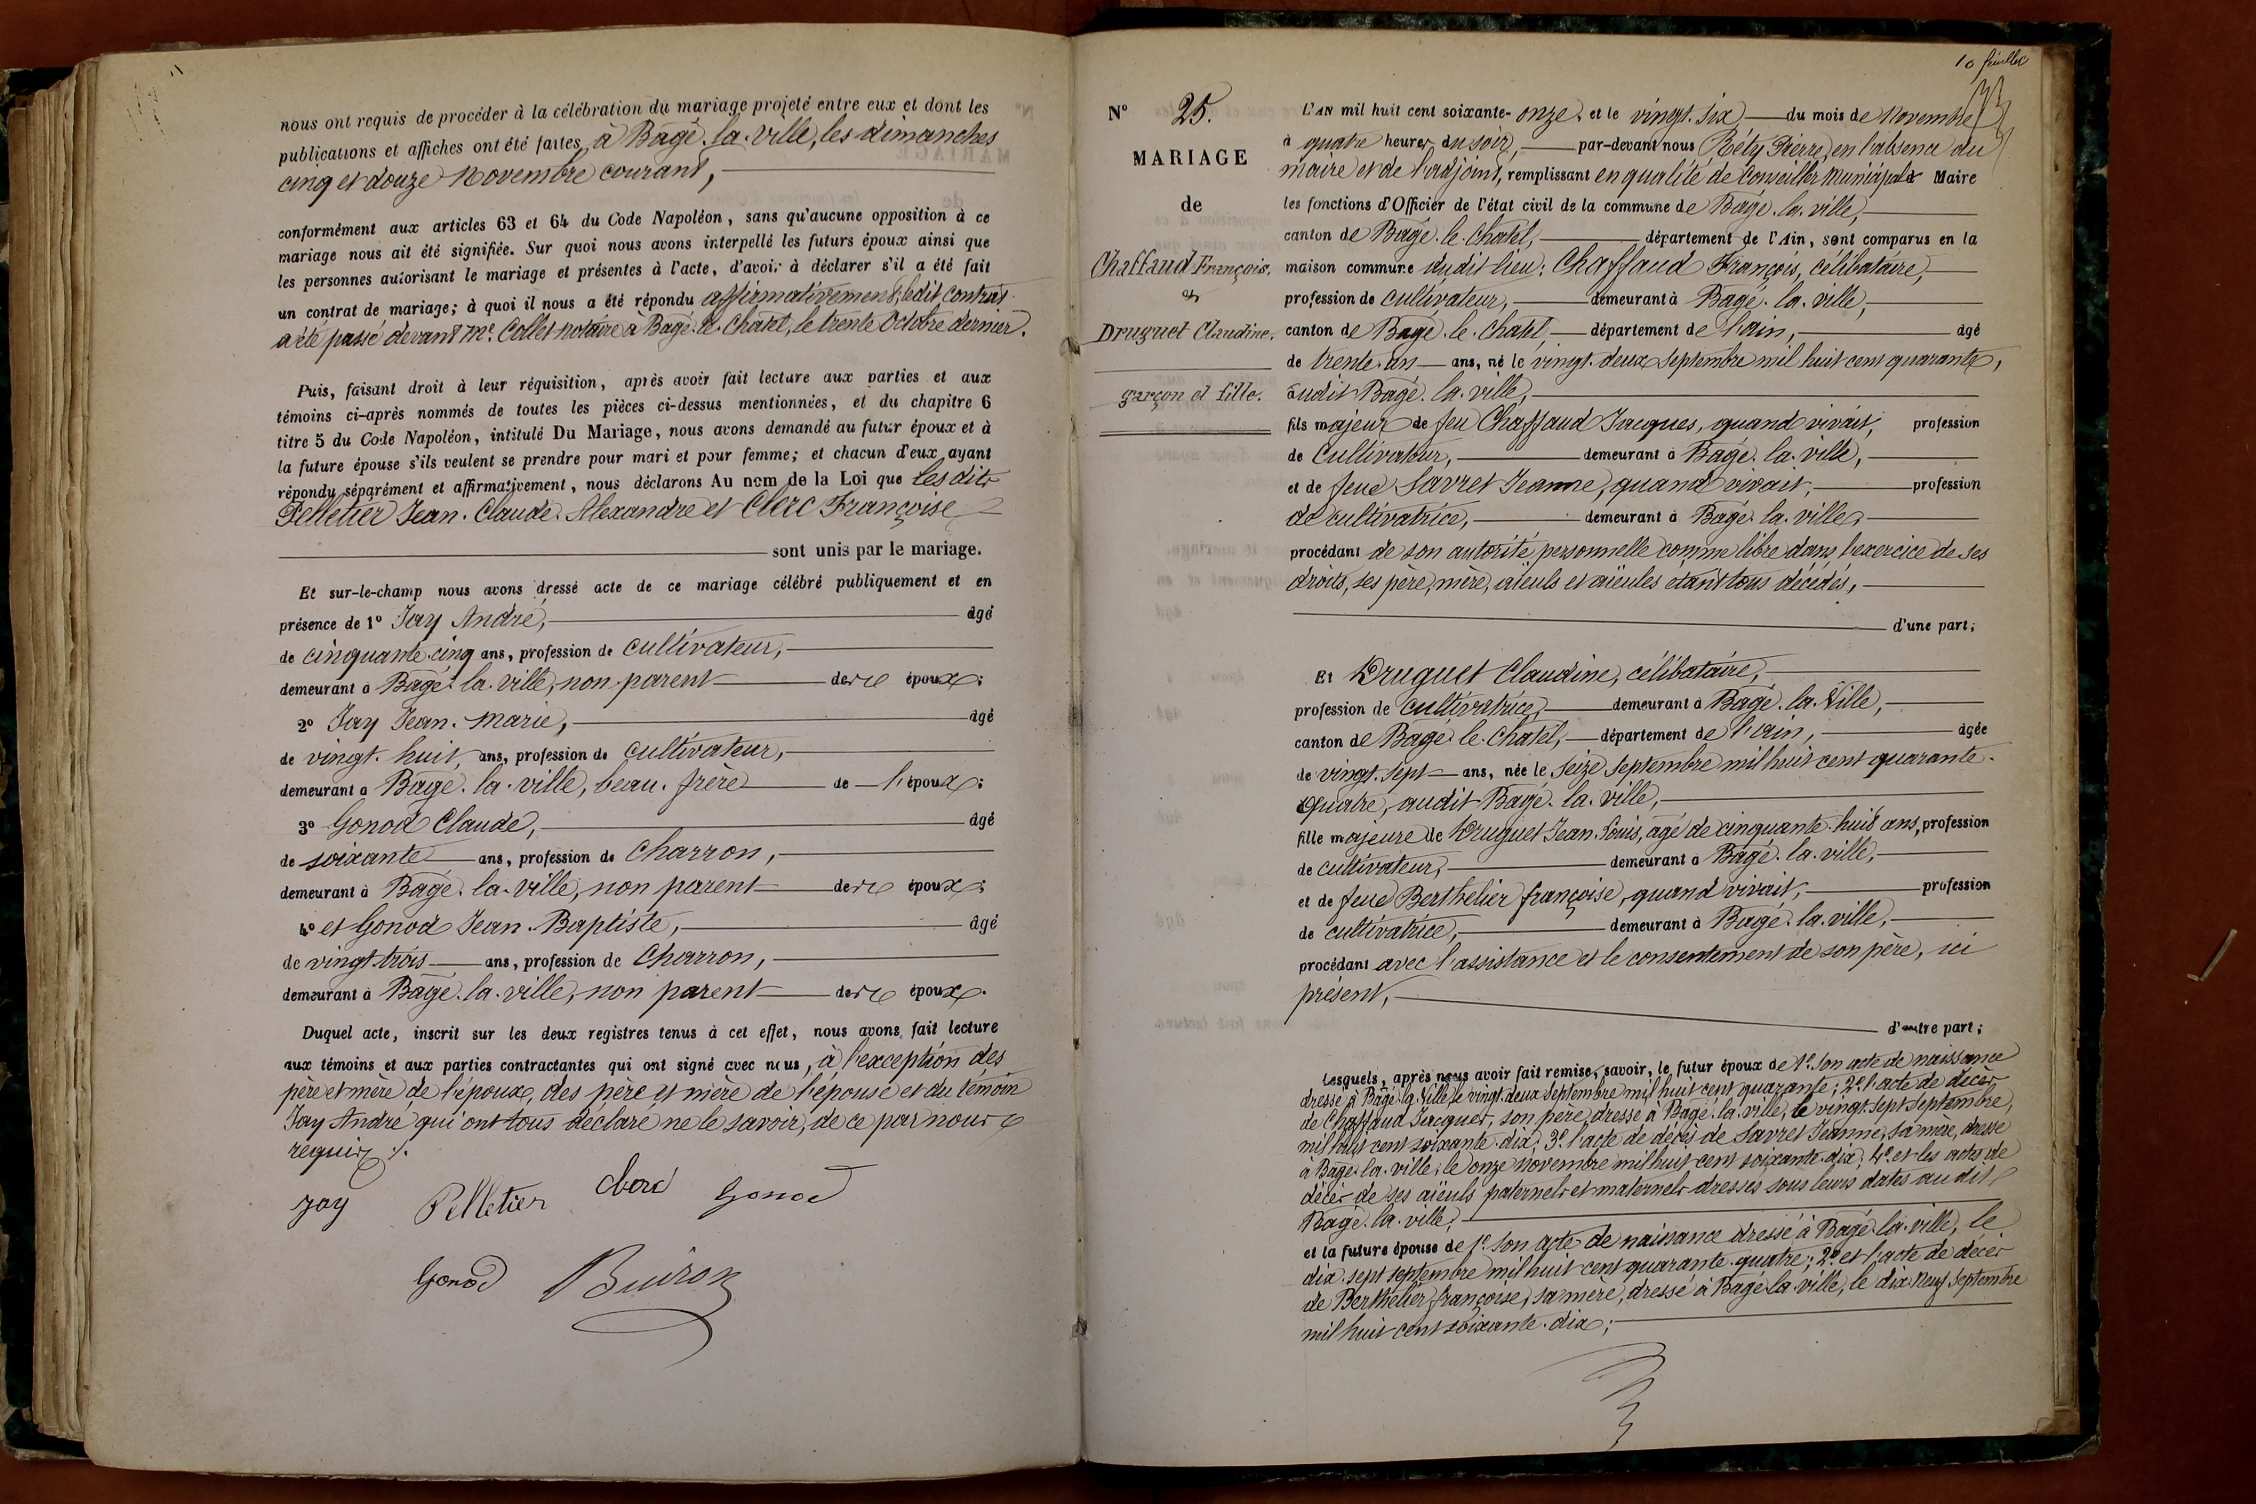 nous ont requis de procéder à la célébration du mariage projeté entre eux et dont les
publications et affiches ont été faites à Bagé-la-ville, les dimanches
cinq et douze Novembre courant,
conformément aux articles 63 et 64 du Code Napoléon, sans qu'aucune opposition à ce
mariage nous ait été signifiée. Sur quoi nous avons interpellé les futurs époux ainsi que
les personnes autorisant le mariage et présentes à l'acte, d'avoir à déclarer s'il a été fait
un contrat de mariage; à quoi il nous a été répondu affirmativement; ledit contrat
a été passé devant Me. Collet notaire à Bagé-le-Chatel, le trente Octobre dernier.
Puis, faisant droit à leur réquisition, après avoir fait lecture aux parties et aux
témoins ci-après nommés de toutes les pièces ci-dessus mentionnées, et du chapitre 6
titre 5 du Code Napoléon, intitulé Du Mariage, nous avons demandé au futur époux et à
la future épouse s'ils veulent se prendre pour mari et pour femme; et chacun d'eux ayant
répondu séparément et affirmativement, nous déclarons Au nom de la Loi que lesdits
Pelletier Jean-Claude-Alexandre et Clerc Françoise
sont unis par le mariage.
Et sur-le-champ nous avons dressé acte de ce mariage célébré publiquement et en
présence de 1° Jay André, âgé
de cinquante-cinq ans, profession de cultivateur,
demeurant à Bagé-la-ville, non parent des époux;
2° Jay Jean-Marie, âgé
de vingt-huit ans, profession de cultivateur,
demeurant à Bagé-la-ville, beau-frère de l'époux;
3° Gonod Claude, âgé
de soixante ans, profession de Charron,
demeurant à Bagé-la-ville, non parent des époux;
4° et Gonod Jean-Baptiste, âgé
de vingt trois ans, profession de Charron,
demeurant à Bagé-la-ville, non parent des époux.
Duquel acte, inscrit sur les deux registres tenus à cet effet, nous avons fait lecture
aux témoins et aux parties contractantes qui ont signé avec nous, à l'exception des
père et mère de l'époux, des père et mère de l'épouse et du témoin
Jay André qui ont tous déclaré ne le savoir, de ce par nous
requis ./.
Jay Pelletier Gonod
Gonod Buiron
10 feuillet
N° 25.
MARIAGE
de
Chaffaud François.
et
Druguet Claudine.
garçon et fille.
L'AN mil huit cent soixante-onze et le vingt-six du mois de Novembre
à quatre heures du soir, par-devant nous Réty Pierre, en l'absence du
maire et de l'adjoint, remplissant en qualité de Conseiller Municipal Maire
les fonctions d'Officier de l'état civil de la commune de Bagé-la-ville,
canton de Bagé-le-Chatel, département de l'Ain, sont comparus en la
maison commune dudit lieu: Chaffaud François, célibataire,
profession de cultivateur, demeurant à Bagé-la-ville,
canton de Bagé-le-Chatel, département de l'ain, âgé
de trente-un ans, né le vingt-deux septembre mil huit cent quarante,
audit Bagé-la-ville,
fils majeur de feu Chaffaud Jacques, quand vivait, profession
de Cultivateur, demeurant à Bagé-la-ville,
et de feue Savret Jeanne, quand vivait, profession
de cultivatrice, demeurant à Bagé-la-ville,
procédant de son autorité personnelle comme libre dans l'exercice de ses
droits, ses père, mère, aïeuls et aïeules étant tous décédés,
d'une part;
Et Druguet Claudine, célibataire,
profession de cultivatrice, demeurant à Bagé-la-Ville,
canton de Bagé-le-Chatel, département de l'ain, âgée
de vingt-sept ans, née le seize septembre mil huit cent quarante-
quatre, audit Bagé-la-ville,
fille majeure de Druguet Jean-Louis, agé de cinquante-huit ans, profession
de cultivateur, demeurant à Bagé-la-ville,
et de feue Berthelier françoise, quand vivait, profession
de cultivatrice, demeurant à Bagé-la-ville,
procédant avec l'assistance et le consentement de son père, ici
présent,
d'autre part;
Lesquels, après nous avoir fait remise, savoir, le futur époux de 1°. son acte de naissance
dressé à Bagé-la-Ville le vingt-deux septembre mil huit cent quarante; 2°. l'acte de décès
de Chaffaud Jacques, son père, dressé à Bagé-la-ville, le vingt-sept septembre,
mil huit cent soixante-dix; 3°. l'acte de décès de Savret Jeanne, sa mère, dressé
à Bagé-la-ville, le onze novembre mil huit cent soixante-dix; 4°. et les actes de
décès de ses aïeuls paternels et maternels dressés sous leurs dates audit
Bagé-la-ville;
et la future épouse de 1°. son acte de naissance dressé à Bagé-la-ville, le
dix-sept septembre mil huit cent quarante-quatre; 2°. et l'acte de décès
de Berthelier françoise, sa mère, dressé à Bagé-la-ville, le dix-neuf septembre
mil huit cent soixante-dix;